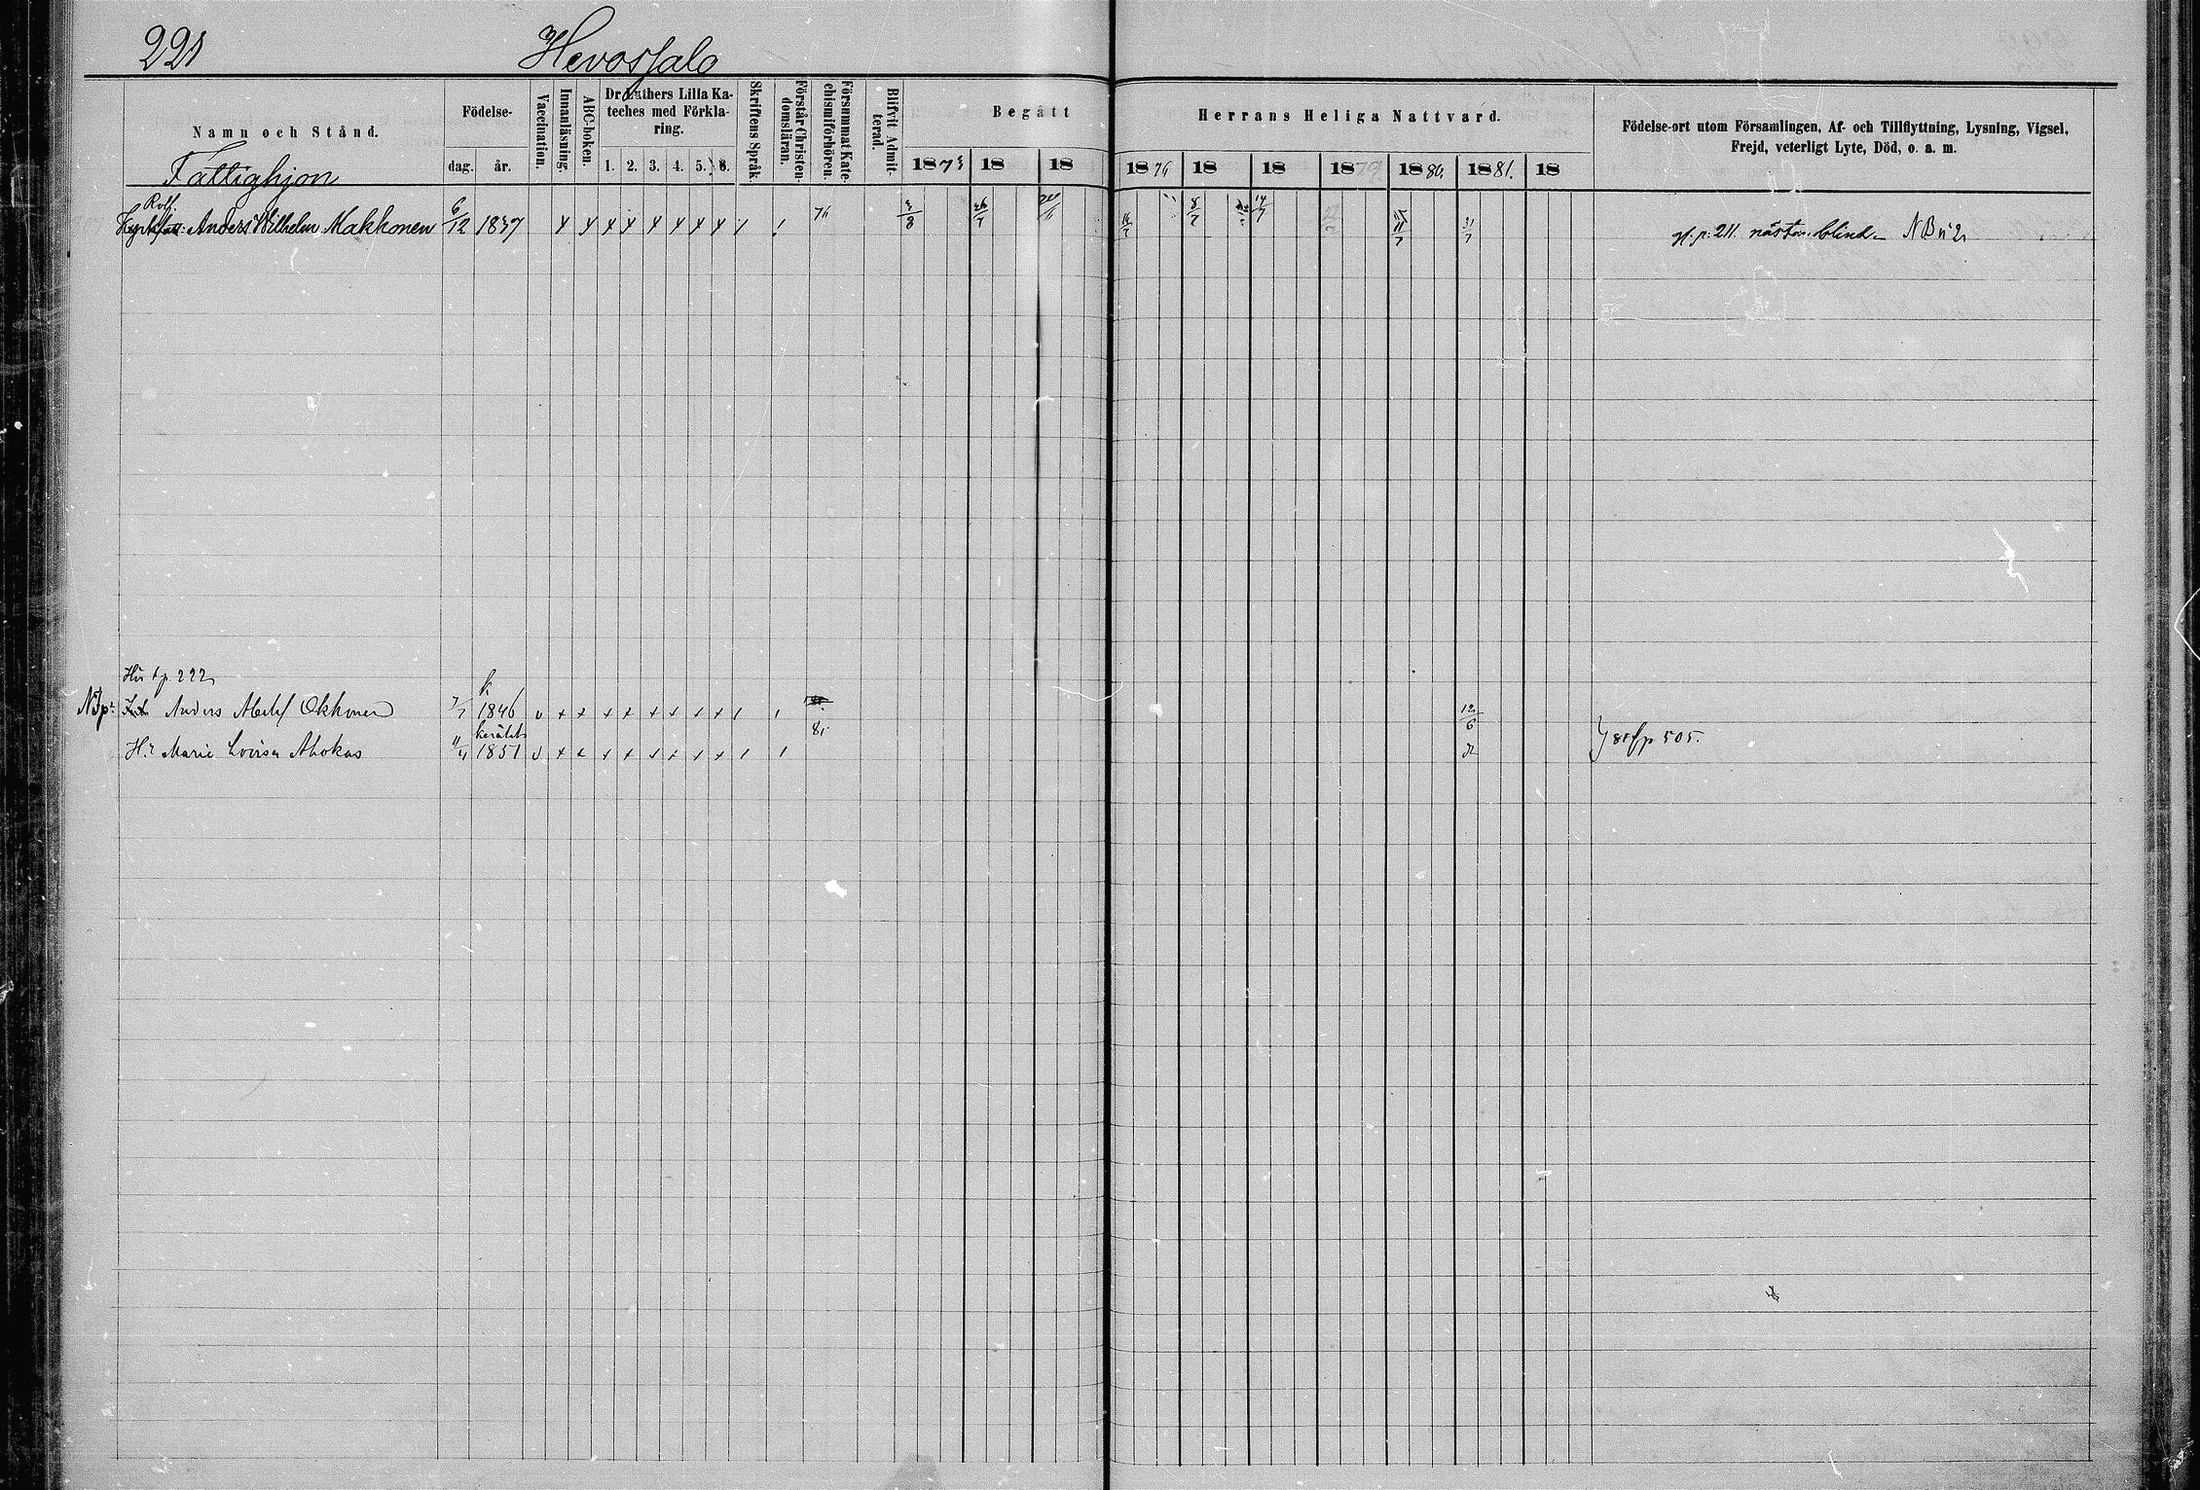 221 Hevossalo
Namn och Stånd.
Födelse-
dag. år.
Vaccination.
Innanläsning.
ABC-boken.
Dr Luthers Lilla Ka-
teches med Förkla-
ring.
1. 2. 3. 4. 5. 6.
Skriftens Språk.
Förstår Christen-
domsläran.
Försummat Kate-
chismiförhören.
Blifvit Admit-
terad.
Begått Herrans Heliga Nattvard.
1873 18 18 1876 18 18 1879 1880. 1881. 18
Födelse-ort utom Församlingen, Af- och Tillflyttning, Lysning, Vigsel,
Frejd, veterligt Lyte, Död, o. a. m.
Fattighjon
Anders Wilhelm Makkonen 6/12 1837 x x x x x x x x 76 26/7 16/7 8/7 14/7 11/7 p. 211. nästan blind
p 222
Anders Okkonen 7/7 1846 v x x x x x x x x 12/6
81
Hu Maria Lovisa Ahokas 11/4 1851 v x x x x x x x x
p 505.